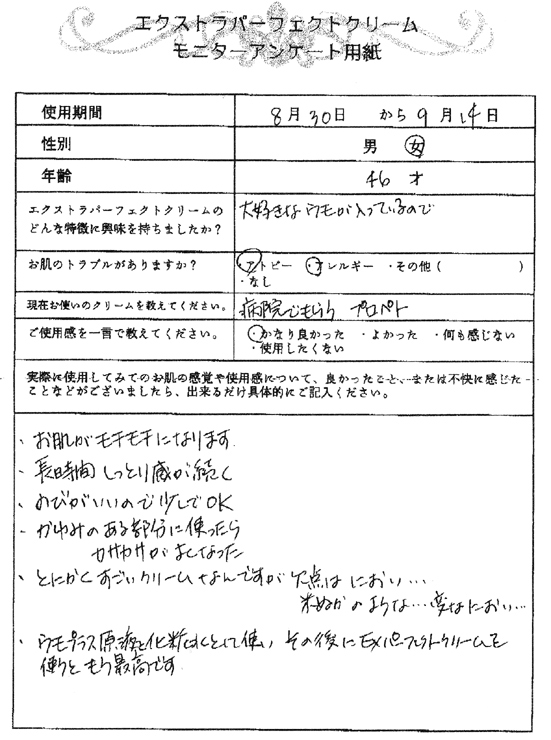 エクストラパーフェクトクリーム
モニターアンケート用紙
使用期間 8月30日 から9月14日
性別 男 女
年齢 46 才
エクストラパーフェクトクリームの
どんな特徴に興味を持ちましたか？ 大好きなウモが入っているので
お肌のトラブルがありますか？ ・アトピー ・アレルギー ・その他（ ）
・なし
現在お使いのクリームを教えてください。 病院でもらう プロペト
ご使用感を一言で教えてください。 ・かなり良かった ・よかった ・何も感じない
・使用したくない
実際に使用してみてのお肌の感覚や使用感について、良かったこと、または不快に感じた
ことなどがございましたら、出来るだけ具体的にご記入ください。
・お肌がモチモチになります
・長時間しっとり感が続く
・のびがいいので少しでOK
・かゆみのある部分に使ったら
カサカサがよくなった
・とにかくすごいクリームなんですが欠点はにおい…
米ぬかのような…変なにおい…
・ウモプラス原液を化粧水として使い その後にEXパーフェクトクリームを
使うともう最高です